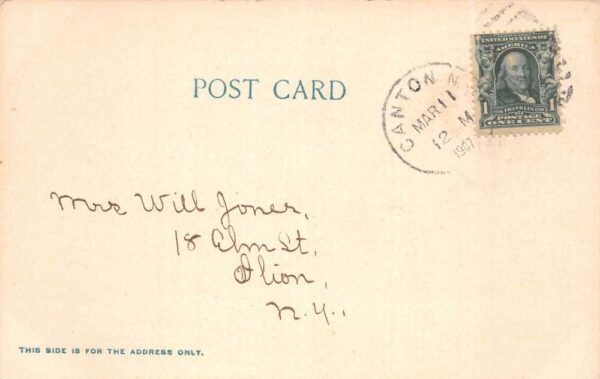 UNITED STATES OF
AMERICA
FRANKLIN
1 1
POSTAGE
ONE CENT
CANTON N
MAR 11
12 M
1907
POST CARD
Mrs Will Jones,
18 Elm St,
Ilion,
N.Y.,
THIS SIDE IS FOR THE ADDRESS ONLY.